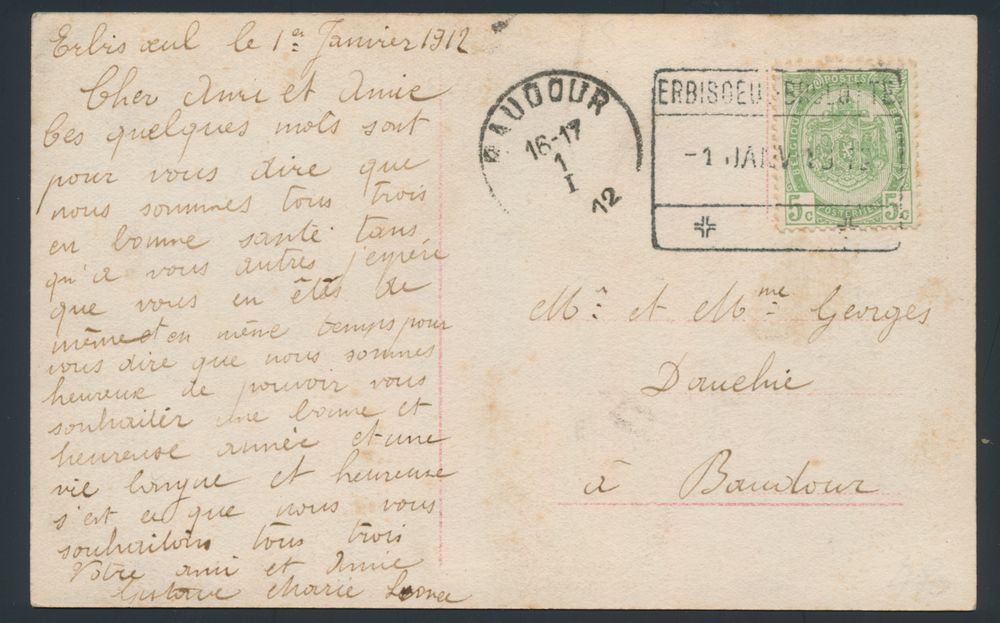 Erbisœul le 1er Janvier 1912
Cher Ami et Amie
Ces quelques mots sont
pour vous dire que
nous sommes tous trois
en bonne santé tans
qu'a vous autres j'espère
que vous en êtes de
même et en même temps pour
vous dire que nous sommes
heureux de pouvoir vous
souhaiter une bonne et
heureuse année et une
vie longue et heureuse
s'est ce que nous vous
souhaitons tous trois
Votre ami et amie
Gustave Marie
BAUDOUR
16-17
1
I
12
ERBISOEUL
-1 JANV 1912
POSTES
5c 5c
Mr et Mme Georges
Dauchie
à Baudour